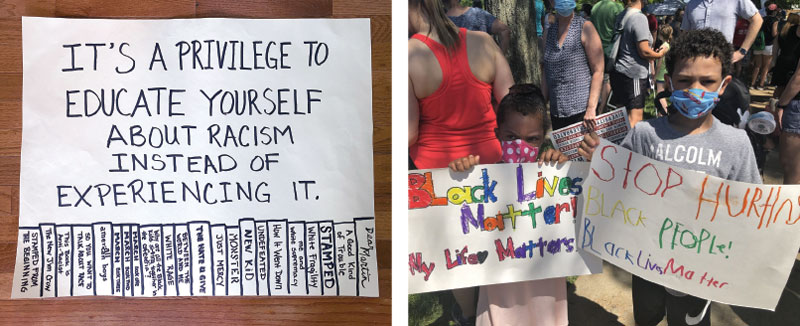 IT'S A PRIVILEGE TO
EDUCATE YOURSELF
ABOUT RACISM
INSTEAD OF
EXPERIENCING IT.
STAMPED FROM
THE BEGINNING
The New Jim Crow
This Book is
Anti-Racist
SO YOU WANT TO
TALK ABOUT RACE
american boys
MARCH
MARCH
MARCH
WHITE RAGE
BETWEEN THE
WORLD AND ME
THE HATE U GIVE
JUST MERCY
MONSTER
NEW KID
UNDEFEATED
How It Went Down
me and
white supremacy
White Fragility
STAMPED
A Good Kind
of Trouble
Dear Martin
Black Lives
Matter!
My Life Matters
MALCOLM
STOP HURTIN
BLACK PEOPLE!
Black Lives Matter